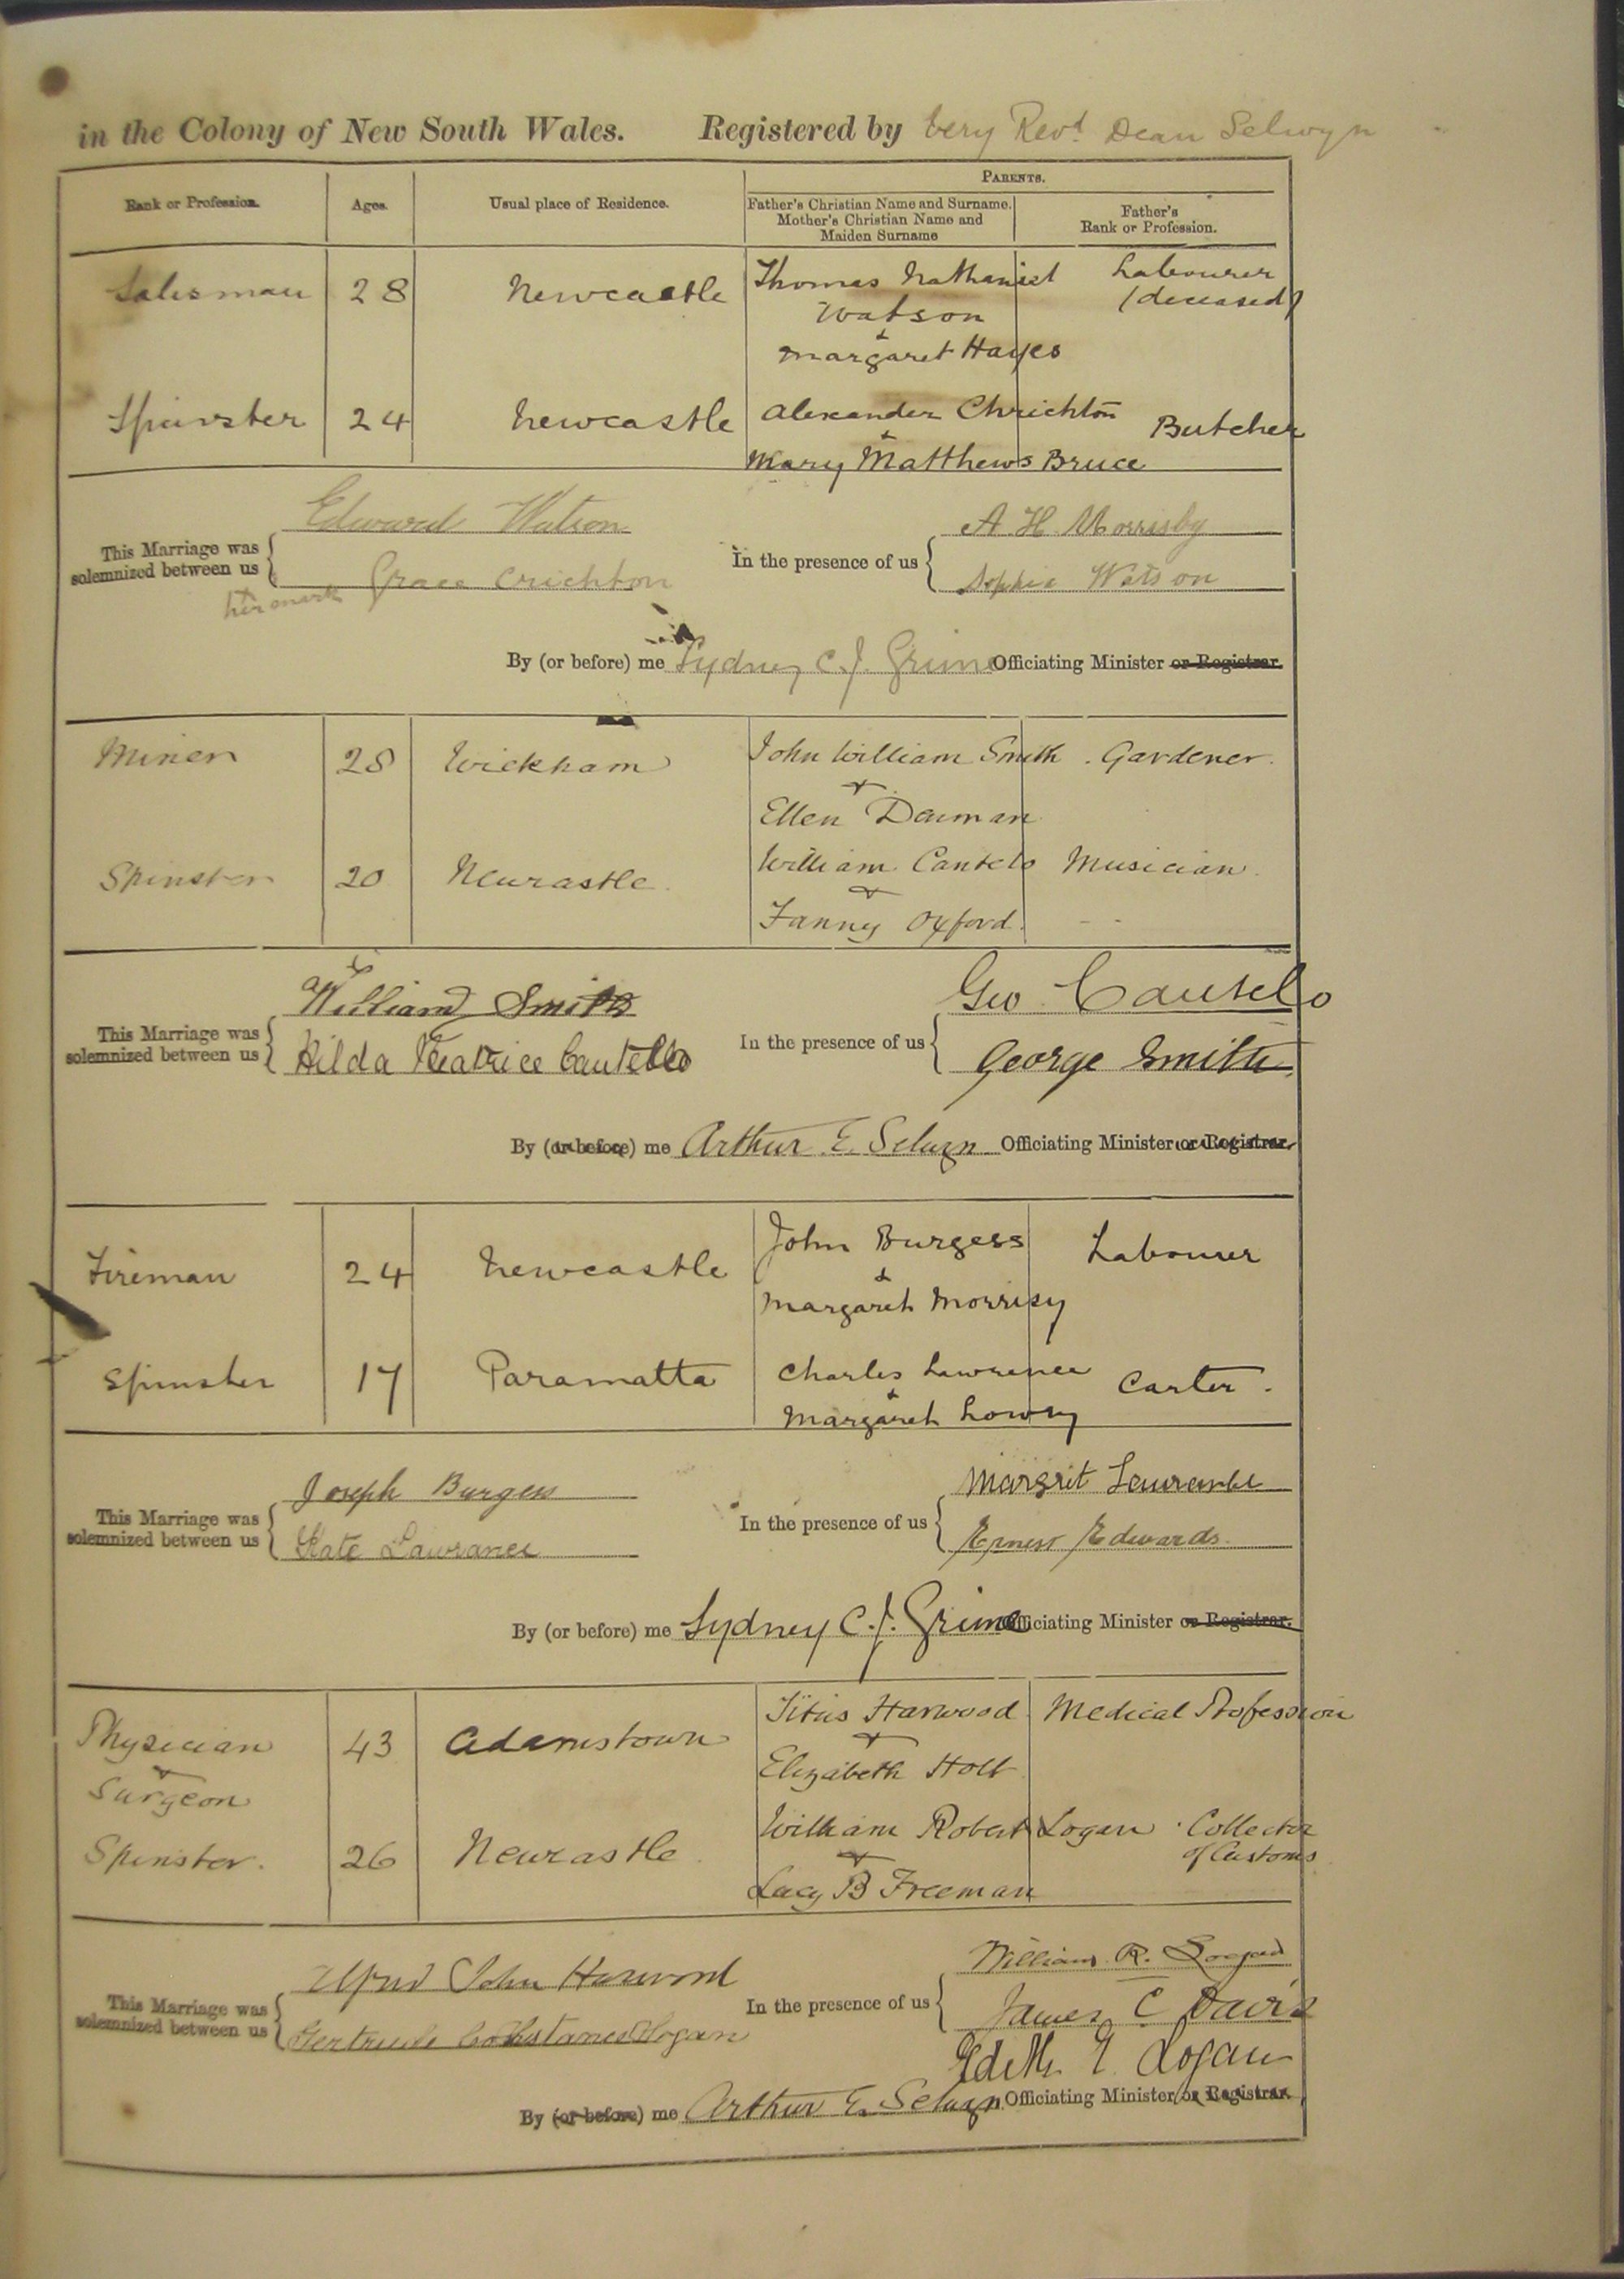 in the Colony of New South Wales. Registered by Very Revd. Dean Selwyn
PARENTS.
Rank or Profession. Ages. Usual place of Residence. Father's Christian Name and Surname. Mother's Christian Name and Maiden Surname Father's Rank or Profession.
Salesman 28 Newcastle Thomas Nathaniel Labourer
Watson (deceased)
&
Margaret Hayes
Spinster 24 Newcastle Alexander Chrichton Butcher
&
Mary Matthews Bruce
Edward Watson A. H. Morrisby
This Marriage was solemnized between us In the presence of us
Grace Crichton Sophia Watson
x her mark
By (or before) me Sydney C. J. Grime Officiating Minister or Registrar.
Miner 28 Wickham John William Smith Gardener.
&
Ellen Denman
Spinster 20 Newcastle. William Cantelo Musician.
&
Fanny Oxford.
William Smith Geo Cantelo
This Marriage was solemnized between us In the presence of us
Hilda Beatrice Cantello George Smith
By (or before) me Arthur E. Selwyn Officiating Minister or Registrar.
Fireman 24 Newcastle John Burgess Labourer
&
Margaret Morrisy
Spinster 17 Paramatta Charles Lawrence Carter.
&
Margaret Lowry
Joseph Burgess Margrit Lawrance
This Marriage was solemnized between us In the presence of us
Kate Lawrance Ernest Edwards.
By (or before) me Sydney C. J. Grime Officiating Minister or Registrar.
Physician 43 Adamstown Titus Harwood Medical Profession
& &
Surgeon Elizabeth Holt
Spinster. 26 Newcastle. William Robert Logan Collector
& of Customs
Lucy B Freeman
Alfred John Harwood William R. Logan
This Marriage was solemnized between us In the presence of us
Gertrude Constance Logan James C Davis
Edith E. Logan
By (or before) me Arthur E. Selwyn Officiating Minister or Registrar.